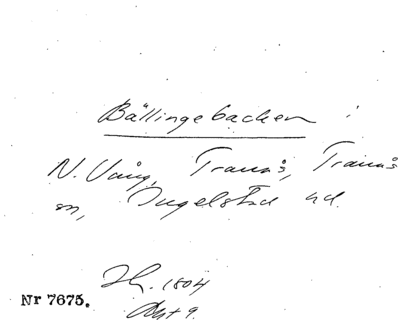 Bällingebacken i
N. Vång, Tranås, Tranås
sn, Ingelstad hd.
Nr 7675.
Sk. 1804
Akt 9.